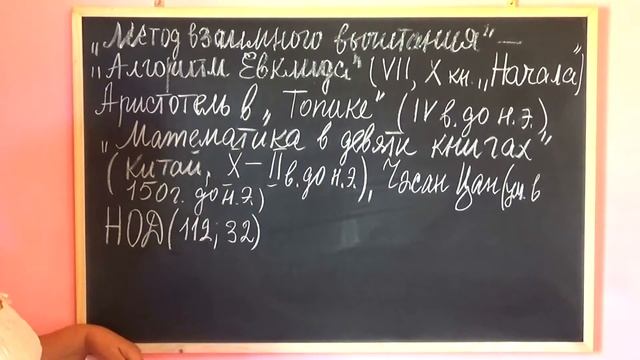 „Метод взаимного вычитания" —
„Алгоритм Евклида" (VII, X кн. „Начала")
Аристотель в „Топике" (IV в. до н.э.)
„Математика в девяти книгах"
(Китай, X – II в. до н.э.), Чжан Цан (ум. в
150 г. до н.э.)
НОД(112; 32)